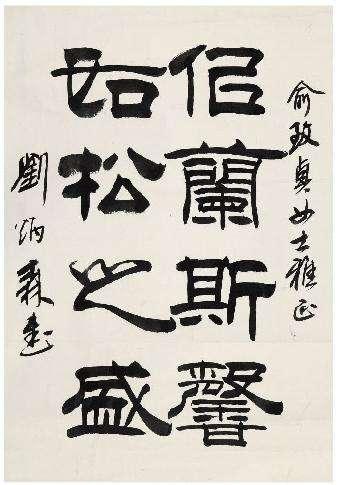 俞致貞女士雅正
似蘭斯馨
如松之盛
劉炳森書